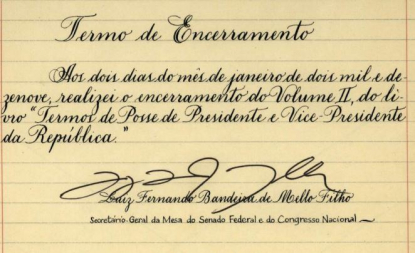 Termo de Encerramento
Aos dois dias do mês de janeiro de dois mil e de-
zenove, realizei o encerramento do Volume II, do li-
vro "Termos de Posse de Presidente e Vice-Presidente
da República."
Luiz Fernando Bandeira de Mello Filho
Secretário-Geral da Mesa do Senado Federal e do Congresso Nacional